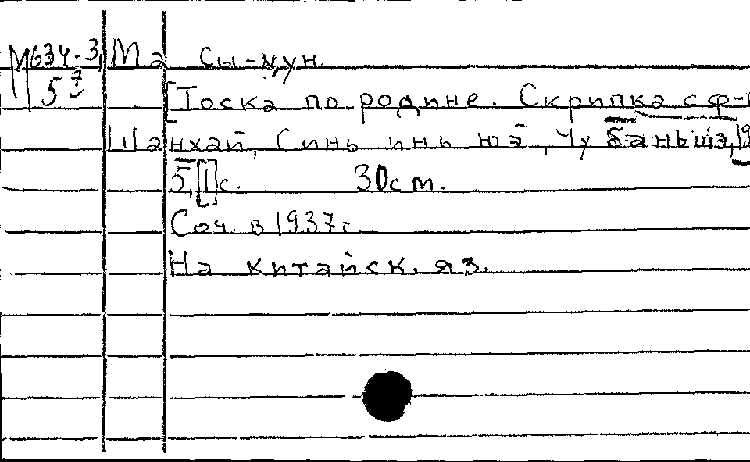 М634-3, Ма Сы-цун.
5 7
[Тоска по родине. Скрипка с ф-
Шанхай, Синь инь юэ, Чу баньшэ, 19
5, [1] с. 30 см.
Соч. в 1937 г.
На китайск. яз.